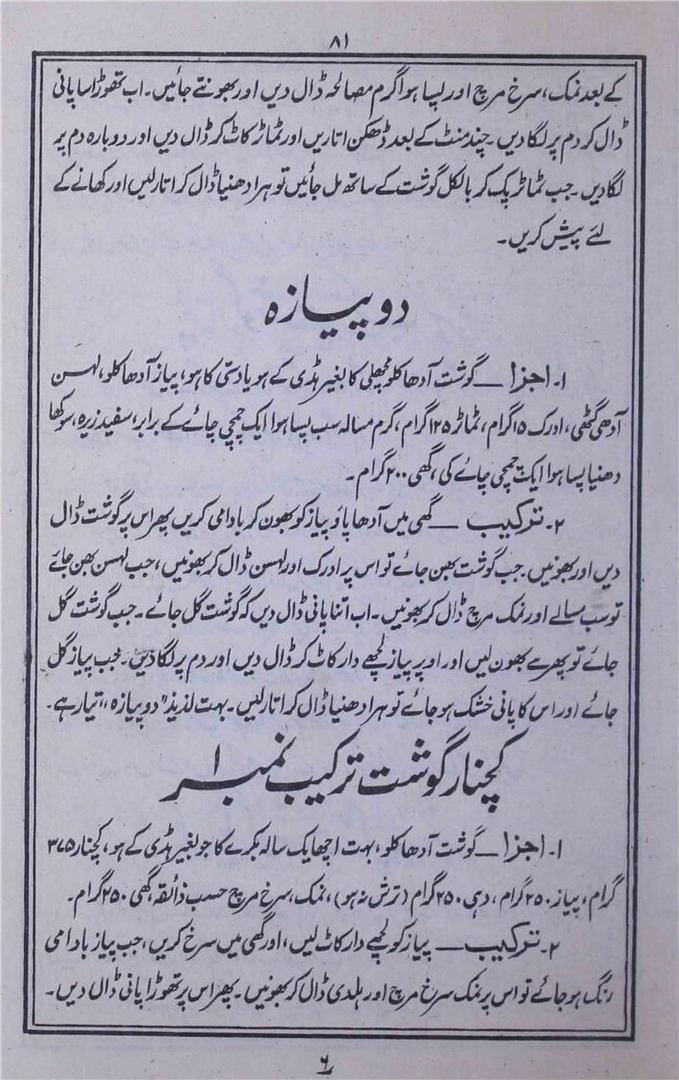 ۸۱
کے بعد نمک، سرخ مرچ اور پسا ہوا گرم مصالحہ ڈال دیں اور بھونتے جائیں۔ اب تھوڑا سا پانی
ڈال کر دم پر لگا دیں۔ چند منٹ کے بعد ڈھکن اتاریں اور ٹماٹر کاٹ کر ڈال دیں اور دوبارہ دم پر
لگا دیں۔ جب ٹماٹر پک کر بالکل گوشت کے ساتھ مل جائیں تو ہرا دھنیا ڈال کر اتار لیں اور کھانے کے
لئے پیش کریں۔
دو پیازہ
۱۔ اجزا — گوشت آدھا کلو مچھلی کا بغیر ہڈی کے ہو یا دستی کا ہو، پیاز آدھا کلو، لہسن
آدھی گٹھی، ادرک ۱۵ گرام، ٹماٹر ۱۲۵ گرام، گرم مسالہ سب پسا ہوا ایک چمچی چائے کے برابر، سفید زیرہ، سوکھا
دھنیا پسا ہوا ایک چمچی چائے کی، گھی ۲۰۰ گرام۔
۲۔ ترکیب — گھی میں آدھا پاؤ پیاز کو بھون کر بادامی کریں پھر اس پر گوشت ڈال
دیں اور بھونیں۔ جب گوشت بھن جائے تو اس پر ادرک اور لہسن ڈال کر بھونیں، جب لہسن بھن جائے
تو سب مسالے اور نمک مرچ ڈال کر بھونیں۔ اب اتنا پانی ڈال دیں کہ گوشت گل جائے۔ جب گوشت گل
جائے تو پھر سے بھون لیں اور اوپر پیاز لچھے دار کاٹ کر ڈال دیں اور دم پر لگا دیں۔ جب پیاز گل
جائے اور اس کا پانی خشک ہو جائے تو ہرا دھنیا ڈال کر اتار لیں۔ بہت لذیذ ”دو پیازہ“ تیار ہے۔
کچنار گوشت ترکیب نمبر ۱
۱۔ اجزا — گوشت آدھا کلو، بہت اچھا یک سالہ بکرے کا جو بغیر ہڈی کے ہو، کچنار ۳۷۵
گرام، پیاز ۲۵۰ گرام، دہی ۲۵۰ گرام (ترش نہ ہو)، نمک، سرخ مرچ حسب ذائقہ، گھی ۲۵۰ گرام۔
۲۔ ترکیب — پیاز کو لچھے دار کاٹ لیں، اور گھی میں سرخ کریں، جب پیاز بادامی
رنگ ہو جائے تو اس پر نمک سرخ مرچ اور ہلدی ڈال کر بھونیں۔ پھر اس پر تھوڑا پانی ڈال دیں۔
۶